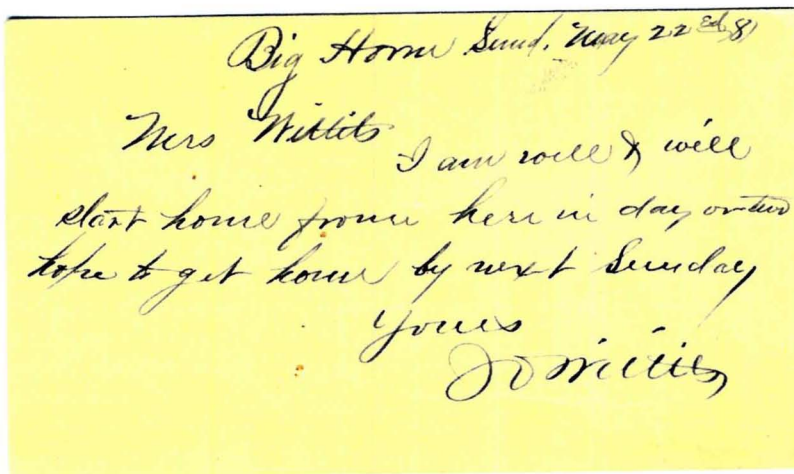 Big Horn Sund. May 22ed 81
Mrs Willits
I am well & will
start home from here in day or two
hope to get home by next Sunday
Yours
J D Willits